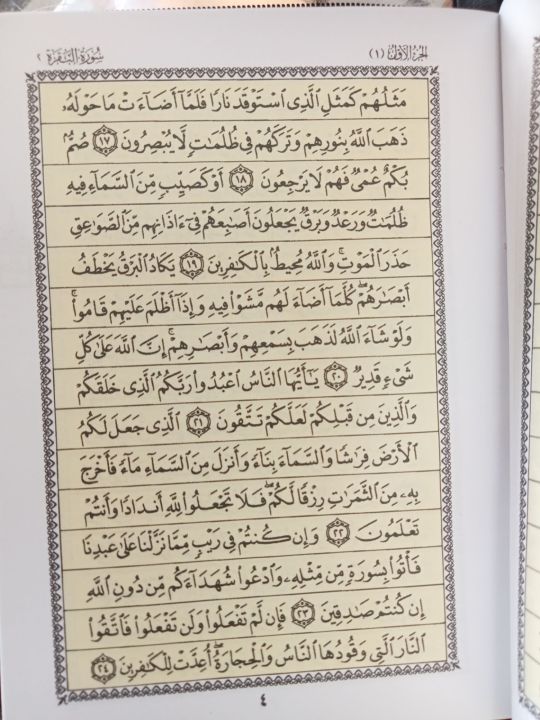 سُورَةُ البَقَرَة ٢
الجُزءُ الأَوَّلُ (١)
مَثَلُهُمْ كَمَثَلِ ٱلَّذِى ٱسْتَوْقَدَ نَارًا فَلَمَّآ أَضَآءَتْ مَا حَوْلَهُۥ
ذَهَبَ ٱللَّهُ بِنُورِهِمْ وَتَرَكَهُمْ فِى ظُلُمَٰتٍ لَّا يُبْصِرُونَ ١٧ صُمٌّۢ
بُكْمٌ عُمْىٌ فَهُمْ لَا يَرْجِعُونَ ١٨ أَوْ كَصَيِّبٍ مِّنَ ٱلسَّمَآءِ فِيهِ
ظُلُمَٰتٌ وَرَعْدٌ وَبَرْقٌ يَجْعَلُونَ أَصَٰبِعَهُمْ فِىٓ ءَاذَانِهِم مِّنَ ٱلصَّوَٰعِقِ
حَذَرَ ٱلْمَوْتِ ۚ وَٱللَّهُ مُحِيطٌۢ بِٱلْكَٰفِرِينَ ١٩ يَكَادُ ٱلْبَرْقُ يَخْطَفُ
أَبْصَٰرَهُمْ ۖ كُلَّمَآ أَضَآءَ لَهُم مَّشَوْا۟ فِيهِ وَإِذَآ أَظْلَمَ عَلَيْهِمْ قَامُوا۟ ۚ
وَلَوْ شَآءَ ٱللَّهُ لَذَهَبَ بِسَمْعِهِمْ وَأَبْصَٰرِهِمْ ۚ إِنَّ ٱللَّهَ عَلَىٰ كُلِّ
شَىْءٍ قَدِيرٌ ٢٠ يَٰٓأَيُّهَا ٱلنَّاسُ ٱعْبُدُوا۟ رَبَّكُمُ ٱلَّذِى خَلَقَكُمْ
وَٱلَّذِينَ مِن قَبْلِكُمْ لَعَلَّكُمْ تَتَّقُونَ ٢١ ٱلَّذِى جَعَلَ لَكُمُ
ٱلْأَرْضَ فِرَٰشًا وَٱلسَّمَآءَ بِنَآءً وَأَنزَلَ مِنَ ٱلسَّمَآءِ مَآءً فَأَخْرَجَ
بِهِۦ مِنَ ٱلثَّمَرَٰتِ رِزْقًا لَّكُمْ ۖ فَلَا تَجْعَلُوا۟ لِلَّهِ أَندَادًا وَأَنتُمْ
تَعْلَمُونَ ٢٢ وَإِن كُنتُمْ فِى رَيْبٍ مِّمَّا نَزَّلْنَا عَلَىٰ عَبْدِنَا
فَأْتُوا۟ بِسُورَةٍ مِّن مِّثْلِهِۦ وَٱدْعُوا۟ شُهَدَآءَكُم مِّن دُونِ ٱللَّهِ
إِن كُنتُمْ صَٰدِقِينَ ٢٣ فَإِن لَّمْ تَفْعَلُوا۟ وَلَن تَفْعَلُوا۟ فَٱتَّقُوا۟
ٱلنَّارَ ٱلَّتِى وَقُودُهَا ٱلنَّاسُ وَٱلْحِجَارَةُ ۖ أُعِدَّتْ لِلْكَٰفِرِينَ ٢٤
٤